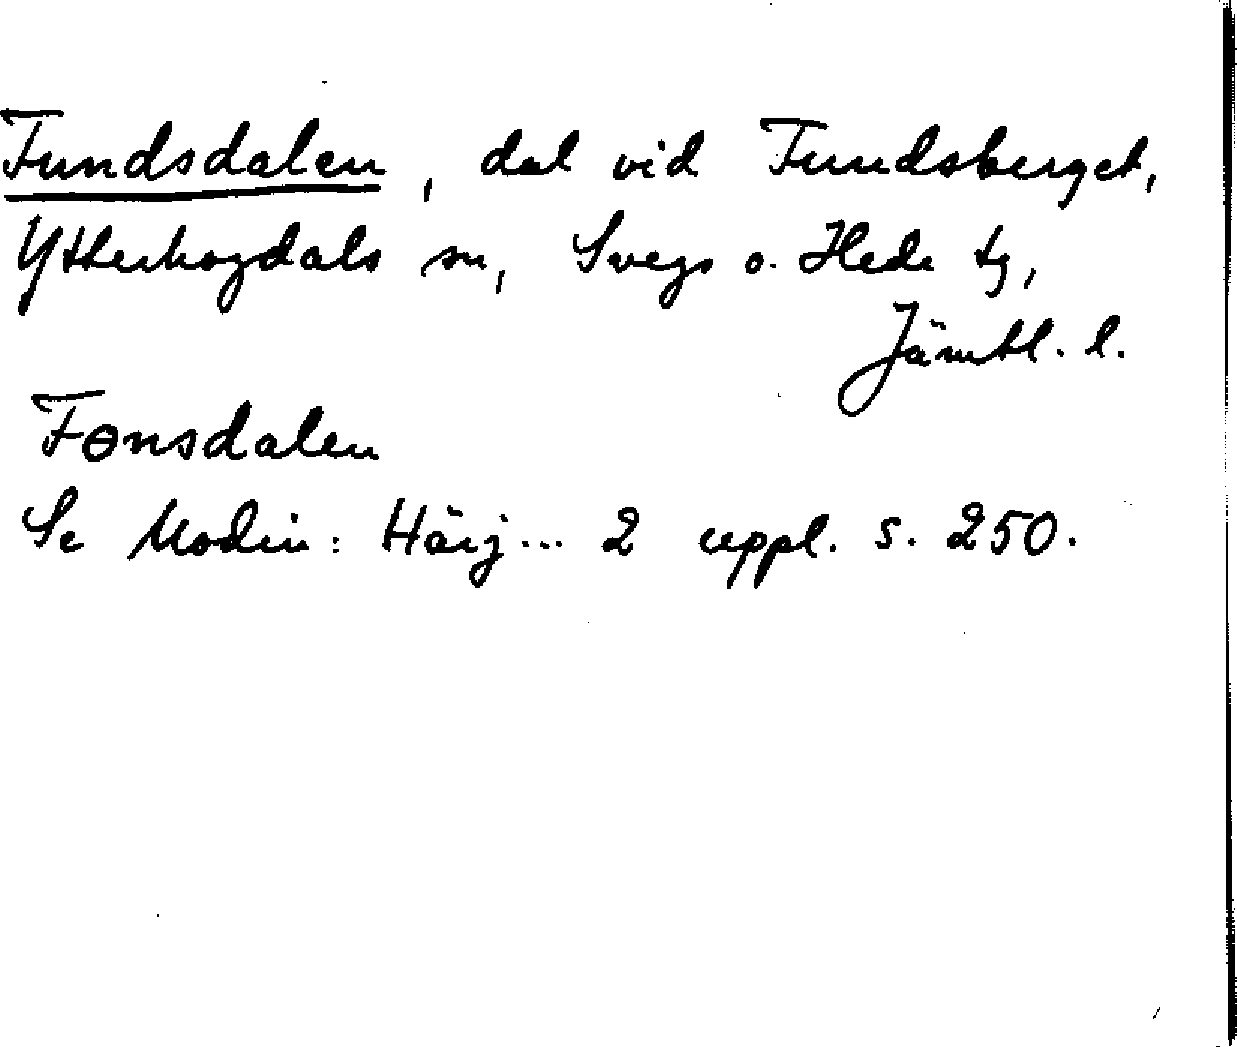 Fundsdalen, dal vid Fundsberget,
Ytterhogdals sn, Svegs o. Hede tg,
Jämtl. l.
Fɵnsdalen
Se Modin: Härj... 2 uppl. s. 250.